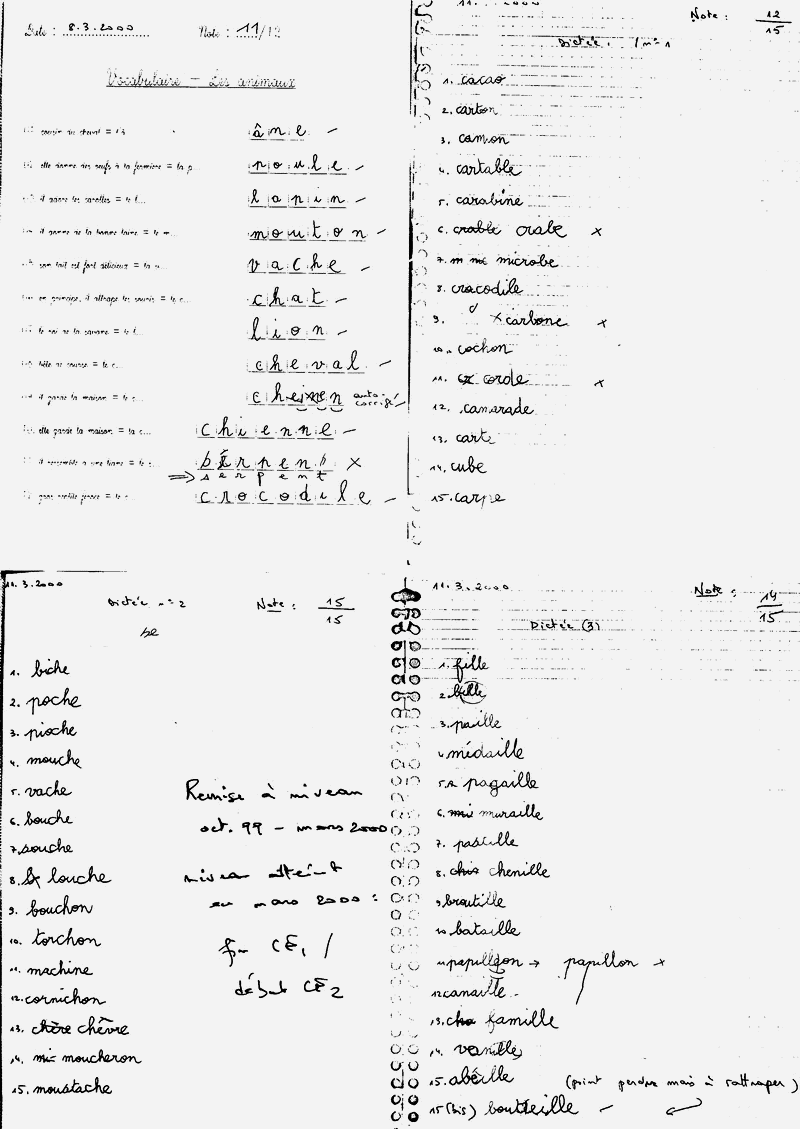 Date : 8.3.2000 Note : 11/12
Vocabulaire - Les animaux
cousin du cheval = l'â... âne
elle donne des oeufs à la fermière = la p... poule
il aime les carottes = le l... lapin
il donne de la bonne laine = le m... mouton
son lait est fort délicieux = la v... vache
en principe, il attrape les souris = le c... chat
le roi de la savane = le l... lion
bête de course = le c... cheval
il garde la maison = le c... chien auto-corrigé
elle garde la maison = la c... chienne
il ressemble à une liane = le s... x
=> serpent
gros reptile féroce = le c... crocodile
Note : 12/15
Dictée n°1
1. cacao
2. carton
3. camion
4. cartable
5. carabine
6. crable crabe x
7. microbe
8. cracodile
9. x carbone x
10. cochon
11. corde x
12. camarade
13. carte
14. cube
15. carpe
11.3.2000
Dictée n°2 Note : 15/15
1. biche
2. poche
3. pioche
4. mouche
5. vache
6. bouche
7. souche
8. louche
9. bouchon
10. torchon
11. machine
12. cornichon
13. chère chèvre
14. moucheron
15. moustache
Remise à niveau
oct. 99 - mars 2000
niveau atteint
en mars 2000 :
fin CE1 /
début CE2
11.3.2000 Note : 14/15
Dictée (3)
1. fille
2. bille
3. paille
4. médaille
5. pagaille
6. muraille
7. pastille
8. chenille
9. broutille
10. bataille
11. papillon → papillon x
12. canaille
13. famille
14. vanille
15. abeille (point perdu mais à rattraper)
15 (bis) boutteille